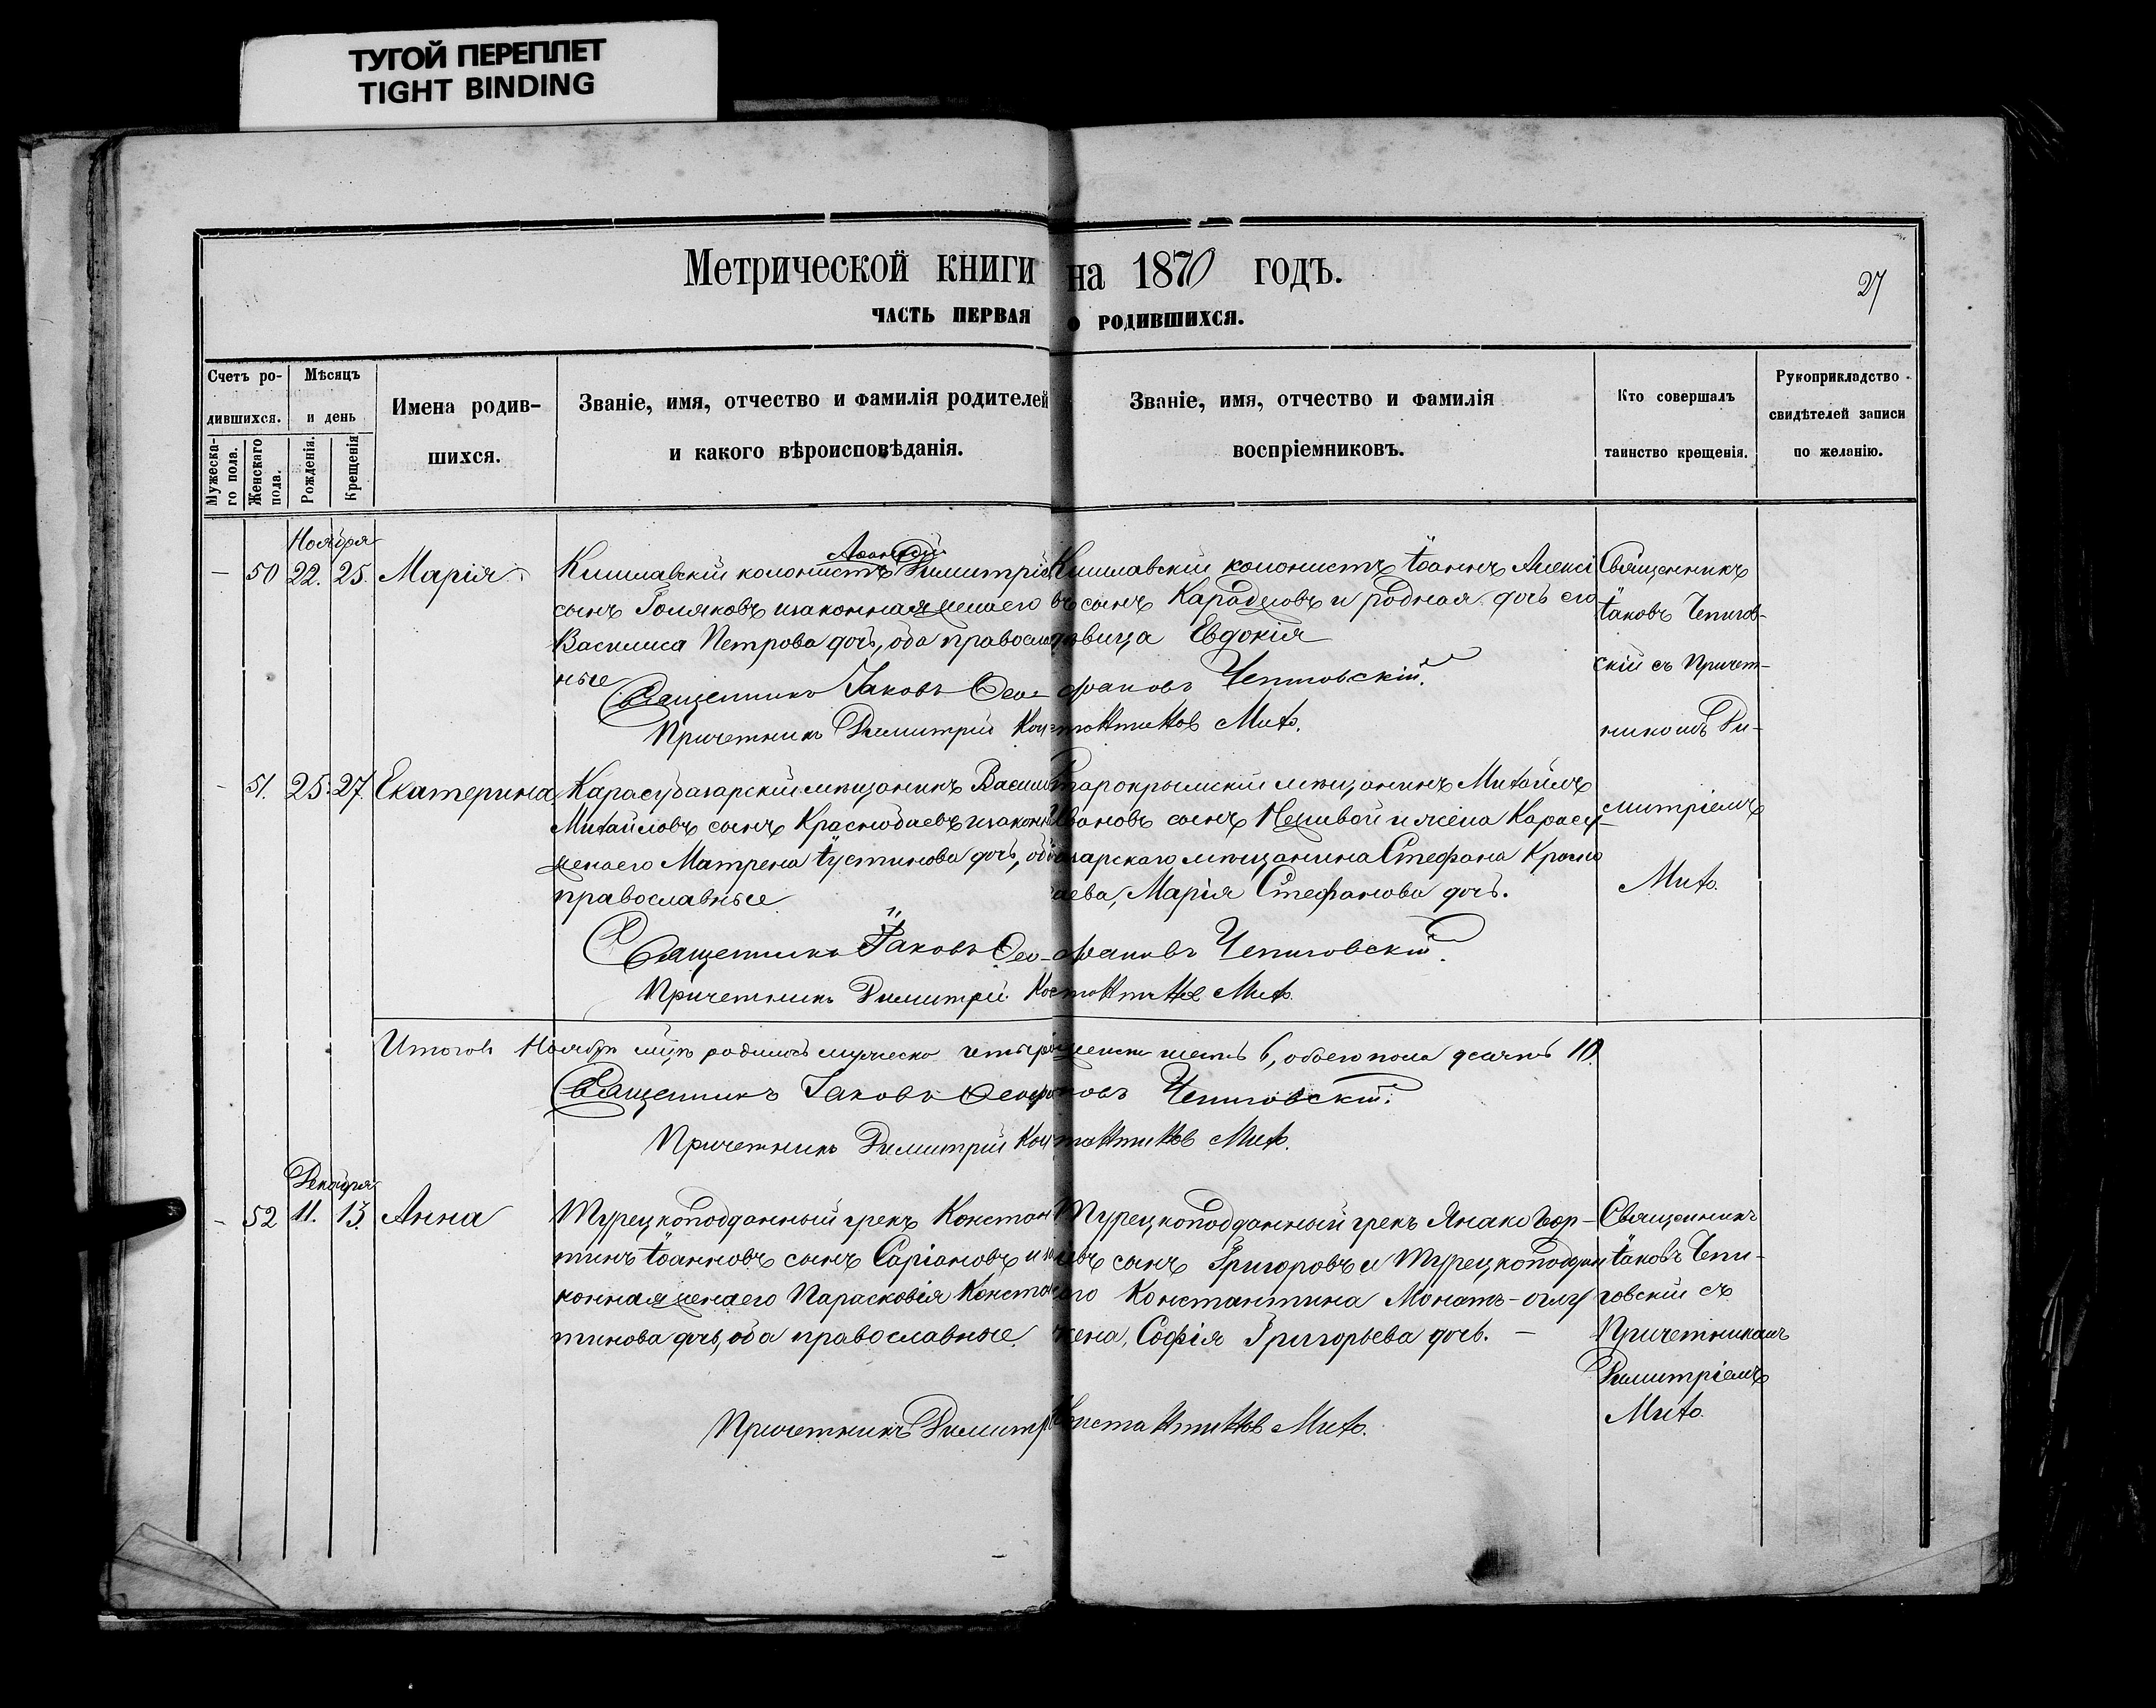 ТУГОЙ ПЕРЕПЛЕТ
TIGHT BINDING
Метрической книги на 1870 годъ.
27
ЧАСТЬ ПЕРВАЯ О РОДИВШИХСЯ.
Счетъ ро-
дившихся.
Мужеска-
го пола.
Женскаго
пола.
Мѣсяцъ
и день
Рожденія.
Крещенія
Имена родив-
шихся.
Званіе, имя, отчество и фамилія родителей
и какого вѣроисповѣданія.
Званіе, имя, отчество и фамилія
воспріемниковъ.
Кто совершалъ
таинство крещенія.
Рукоприкладство
свидѣтелей записи
по желанію.
Ноября
— 50 22. 25. Марія
Кишлавскій колонистъ Димитрій
сынъ Поляковъ и законная жена его
Василиса Петрова дочь, оба православ
ные
Кишлавскій колонистъ Іоаннъ Алексі
въ сынъ Карадцовъ и родная дочь его
дѣвица Евдокія
Священникъ
Іаковъ Чепигов-
скій съ Причет-
никомъ Ди-
митріемъ
Мито.
Священникъ Іаковъ Ѳео-фановъ Чепиговскій.
Причетникъ Димитрій Константинов Мито.
— 51. 25. 27. Екатерина
Карасубазарскій мѣщанинъ Васил
Михайловъ сынъ Краснобаевъ и закон
жена его Матрена Іустинова дочь, оба
православные
Старокрымскій мѣщанинъ Михаилъ
Ивановъ сынъ Нешивой и жена Карасу-
базарскаго мѣщанина Стефана Красно
баева, Марія Стефанова дочь.
Священникъ Іаковъ Ѳео-фановъ Чепиговскій.
Причетникъ Димитрій Константинов Мито.
Итого въ Ноябрѣ мцѣ родилось мужеска четыре, женска шесть 6, обоего пола десять 10.
Священникъ Іаковъ Ѳеофановъ Чепиговскій.
Причетникъ Димитрій Константинов Мито.
Декабря
— 52 11. 13. Анна
Турецкоподданный грекъ Констан
тинъ Іоанновъ сынъ Саріановъ и за
конная жена его Парасковія Констан
тинова дочь, оба православные.
Турецкоподданный грекъ Янако Геор-
гіевъ сынъ Григоровъ и Турецкоподдан
наго Константина Монатъ-оглу
жена, Софія Григорьева дочь. —
Священникъ
Іаковъ Чепи-
говскій съ
Причетникомъ
Димитріемъ
Мито.
Причетникъ Димитрій Константинов Мито.